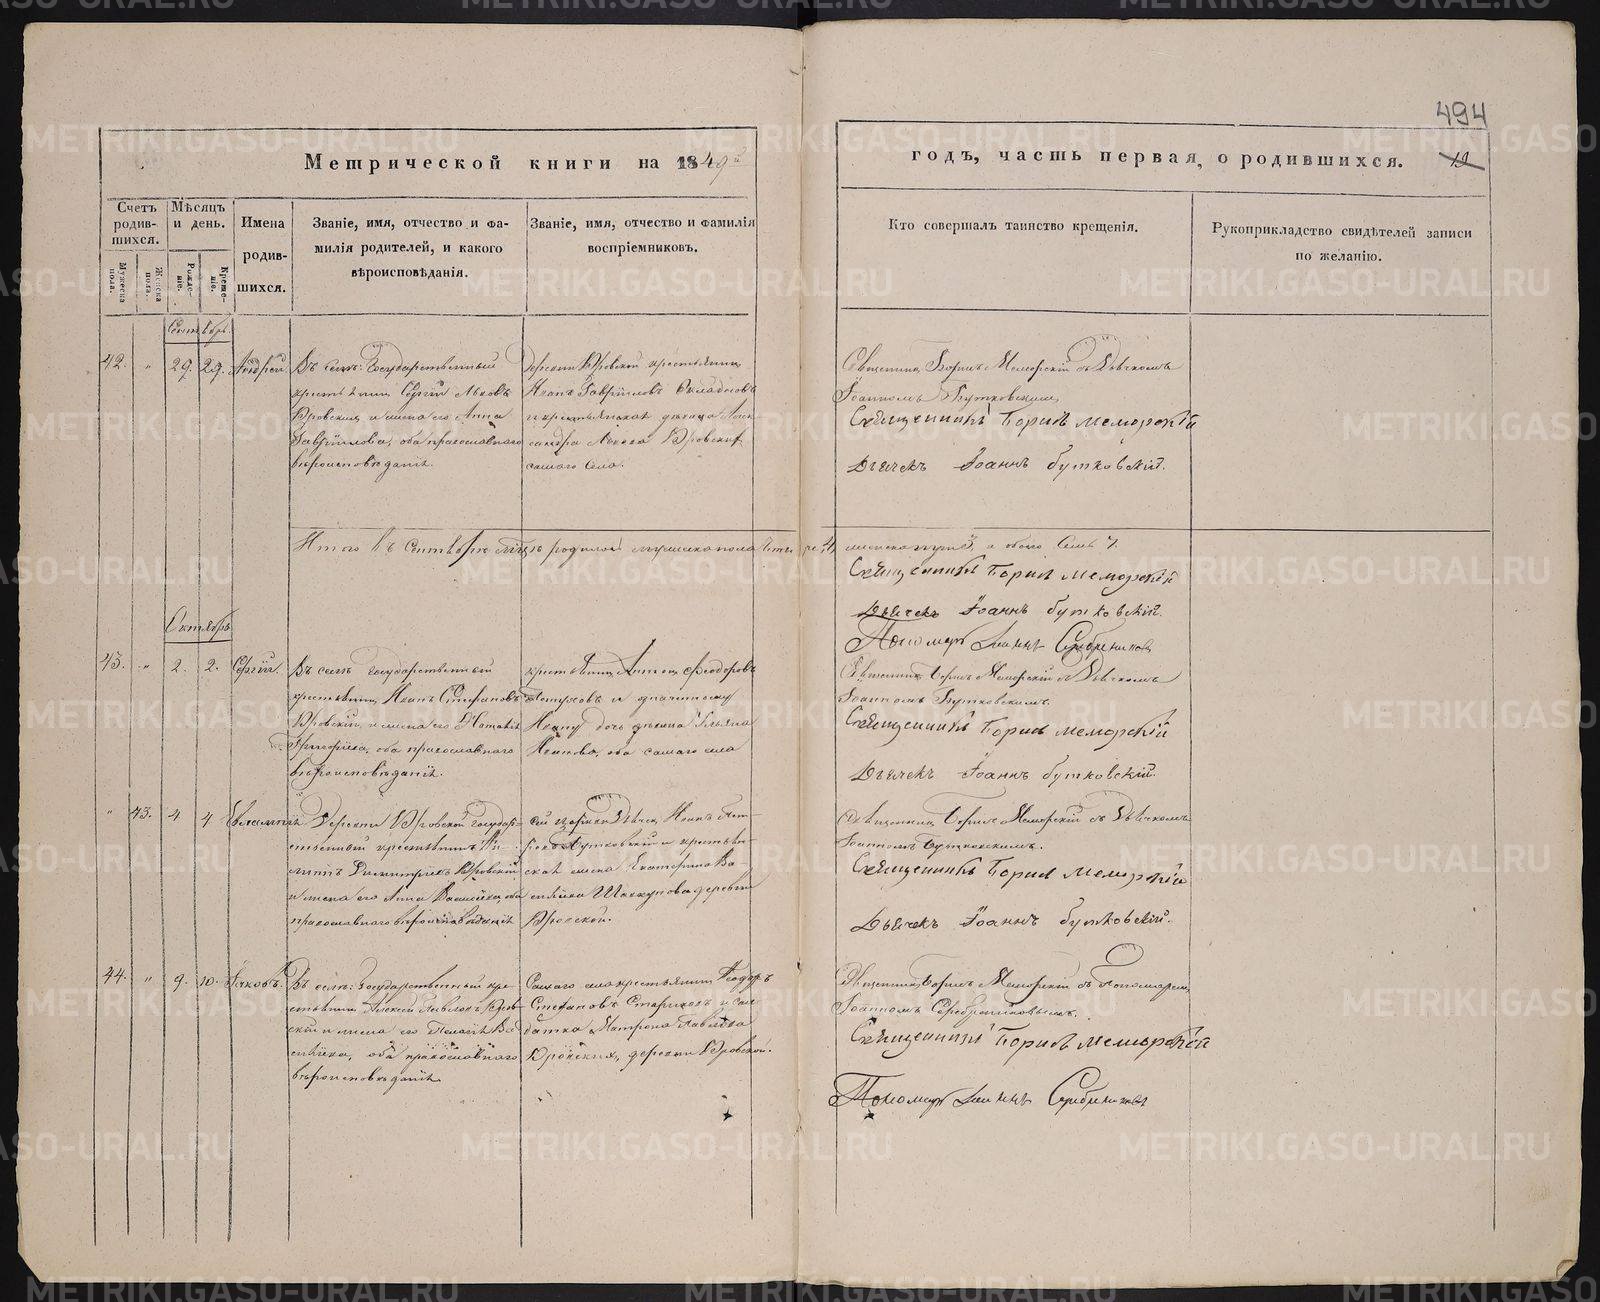 494
Метрической книги на 1849й
годъ, часть первая, о родившихся.
12
Счетъ родив-шихся.
Мѣсяцъ и день.
Имена родив-шихся.
Званіе, имя, отчество и фа-
милія родителей, и какого
вѣроисповѣданія.
Званіе, имя, отчество и фамилія
воспріемниковъ.
Кто совершалъ таинство крещенія.
Рукоприкладство свидѣтелей записи
по желанію.
Мужеска пола.
Женска пола.
Рожде-ніе.
Креще-ніе.
Сентябрь.
42. " 29. 29. Андрей
Въ селѣ: Государственный
крестьянинъ Сергій
и жена его Анна
Гавріилова, оба православнаго
вѣроисповѣданія.
Деревни крестьянинъ
Иванъ Гавріиловъ
и крестьянская дѣвица Алек-
сандра
самаго села.
Священникъ Борисъ Меморскій съ Дьячкомъ
Іоанномъ Бутковскимъ
Священникъ Борисъ Меморскій
Дьячекъ Іоаннъ Бутковскій.
Итого въ Сентябрѣ мѣсяцѣ родилось мужеска пола четыре 4, женска три 3, а обоего семь 7.
Священникъ Борисъ Меморскій
Дьячекъ Іоаннъ Бутковскій.
Пономарь Іоаннъ Серебренниковъ
Октябрь
43. " 2. 2. Сергій.
Въ селѣ государственный
крестьянинъ Иванъ Стефановъ
и жена его Наталія
Григорьева, оба православнаго
вѣроисповѣданія.
крестьянинъ Антонъ Феодоровъ
и
Ивану дочь дѣвица Ульяна
Иванова, оба самаго села
Священникъ Борисъ Меморскій съ Дьячкомъ
Іоанномъ Бутковскимъ.
Священникъ Борисъ Меморскій
Дьячекъ Іоаннъ Бутковскій.
" 43. 4 4 Евлампія
Деревни государ-
ственный крестьянинъ
Димитріевъ
и жена его Анна Васильева, оба
православнаго вѣроисповѣданія.
сей церкви Дьячекъ Иванъ Пет-
ровъ Бутковскій и крестьян-
ская жена Екатерина Ва-
сильева деревни
Священникъ Борисъ Меморскій съ Дьячкомъ
Іоанномъ Бутковскимъ.
Священникъ Борисъ Меморскій
Дьячекъ Іоаннъ Бутковскій.
44. " 9. 10. Іаковъ.
Въ селѣ: Государственный кре-
стьянинъ Алексѣй Павловъ
и жена его Пелагія Ва-
сильева, оба православнаго
вѣроисповѣданія.
Самаго села крестьянинъ Феодоръ
Стефановъ и сол-
датка Матрона Павлова
деревни
Священникъ Борисъ Меморскій съ Пономаремъ
Іоанномъ Серебренниковымъ.
Священникъ Борисъ Меморскій
Пономарь Іоаннъ Серебренниковъ
METRIKI.GASO-URAL.RU